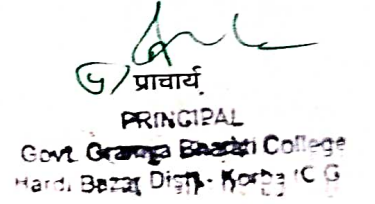 प्राचार्य
PRINCIPAL
Govt. Gramya Bharati College
Hardi Bazar Distt- Korba (C G